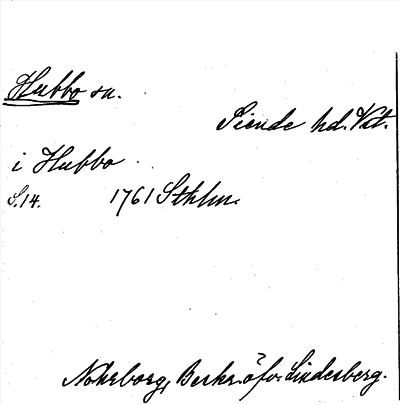 Hubbo sn.
Siende hd. Vst.
i Hubbo
S. 14. 1761 Sthlm.
Nohrborg, Beskr. öfv. Lindesberg.